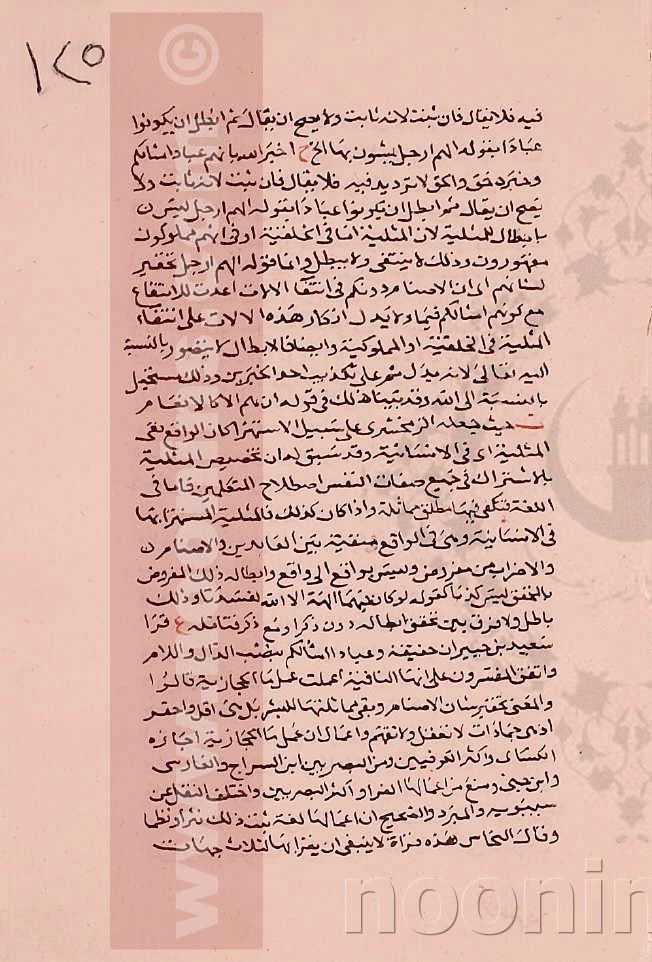 ١٢٥
فيه فلا يقال فان ثبت لانه ثابت ولا يصح ان يقال ثم ابطل ان يكونوا
عبادا بقوله الهم ارجل يمشون بها الخ ح اخبر الله بانهم عباد امثالكم
وخبره حق والحق لا ترديد فيه فلا يقال فان ثبت لانه ثابت ولا
يصح ان يقال ثم ابطل ان يكونوا عبادا بقوله الهم ارجل ليس
بابطال للمثلية لان المثلية اما في الخلقية او في انهم مملوكون
مقهورون وذلك لا ينتفي ولا يبطل وانما قوله الهم ارجل تحقير
لشانهم اي ان الاصنام دونكم في انتفاء الالات اعدت للانتفاع
مع كونهم امثالكم فيما ولا يدل انكار هذه الالات على انتفاء
المثلية في الخلقية او المملوكية وايضا فالابطال لا يتصور بالنسبة
اليه تعالى لانه يدل على تكذيب احد الخبرين وذلك مستحيل
بالنسبة الى الله وقد بينا ذلك في قوله ان هم الا كالانعام
حيث جعله الزمخشري على سبيل الاستهزا كان الواقع نفى
المثلية اي في الانسانية وقد سبق له ان تخصيص المثلية
بالاشتراك في جميع صفات النفس اصطلاح المتكلمين فاما في
اللغة فتكفي فيها مطلق مماثلة واذا كان كذلك فالمثلية المستهزا بها
في الانسانية وهي في الواقع منفية بين العابدين والاصنام
والاضراب من مفروض وليس بواقع الى واقع وابطاله ذلك المفروض
بالمحقق ليس كذبا كقوله لو كان فيهما الهة الا الله لفسدتا وذلك
باطل ولا فرق بين تحقق ابطاله دون ذكر او مع ذكر فتامله ع قرا
سعيد بن جبير ان خفيفة وعبادا امثالكم بنصب الدال واللام
واتفق المفسرون على انها النافية اعملت عمل ما الحجازية قالوا
والمعنى تحقير شان الاصنام ونفي مماثلتها للبشر بل هي اقل واحقر
اذ هي جمادات لا تعقل ولا تفهم واعمال ان عمل ما الحجازية اجازه
الكسائي واكثر الكوفيين ومن البصريين ابن السراج والفارسي
وابن جني ومنع من اعمالها الفرا واكثر البصريين واختلف النقل عن
سيبويه والمبرد والصحيح ان اعمالها لغة ثبت ذلك نثرا ونظما
وقال النحاس هذه قراة لا ينبغي ان يقرا بها لثلاث جهات
www.
©
noonin